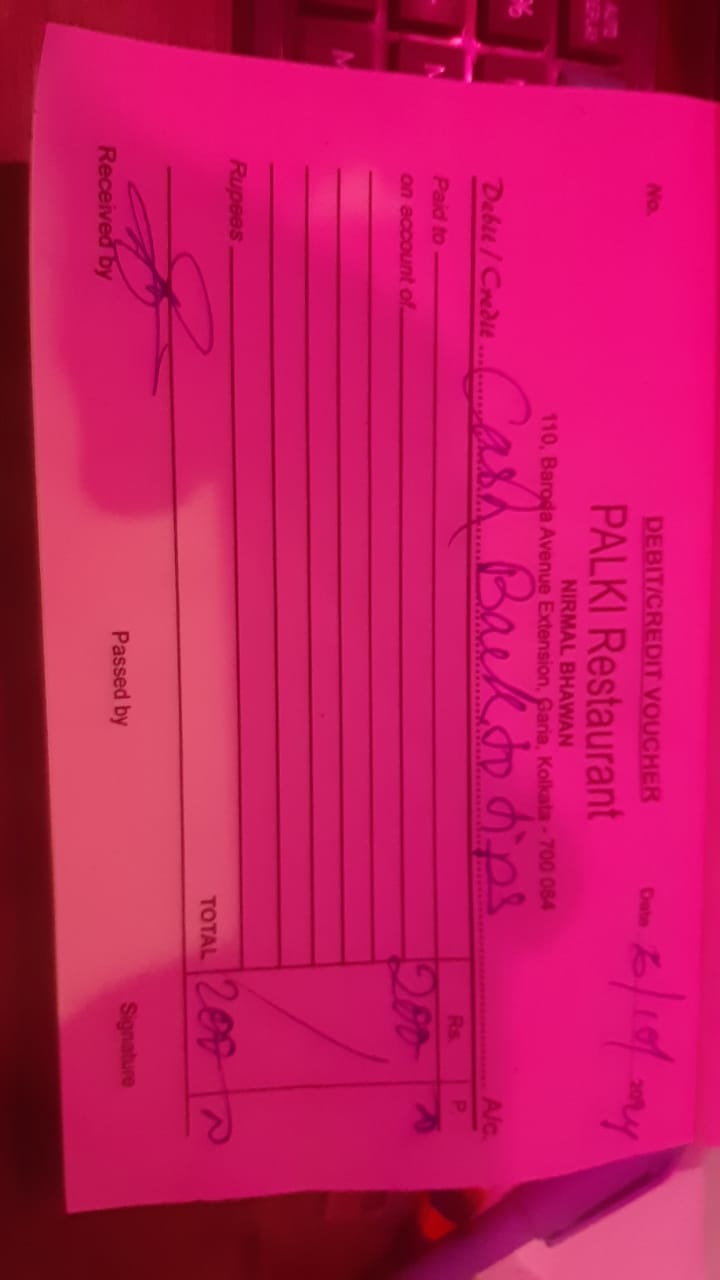 DEBIT/CREDIT VOUCHER
No.
Date
PALKI Restaurant
NIRMAL BHAWAN
110, Baroda Avenue Extension, Garia, Kolkata - 700 084
Debit / Credit Cash Back to tips A/c.
Paid to Rs. P.
on account of 200
Rupees
TOTAL 200
Received by Passed by Signature